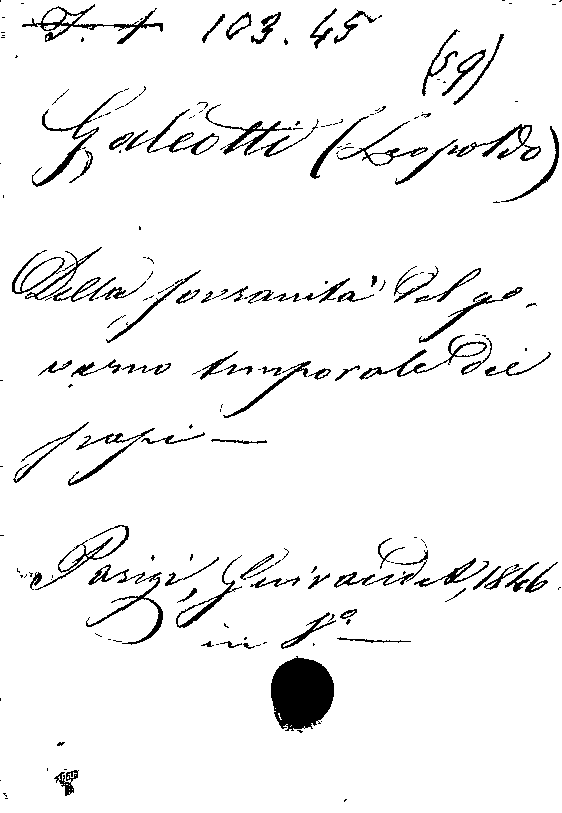 103.45
(59)
Galeotti (Leopoldo)
Della sovranità del go-
verno temporale dei
papi —
Parigi, Guiraudet, 1846.
in 8.° —